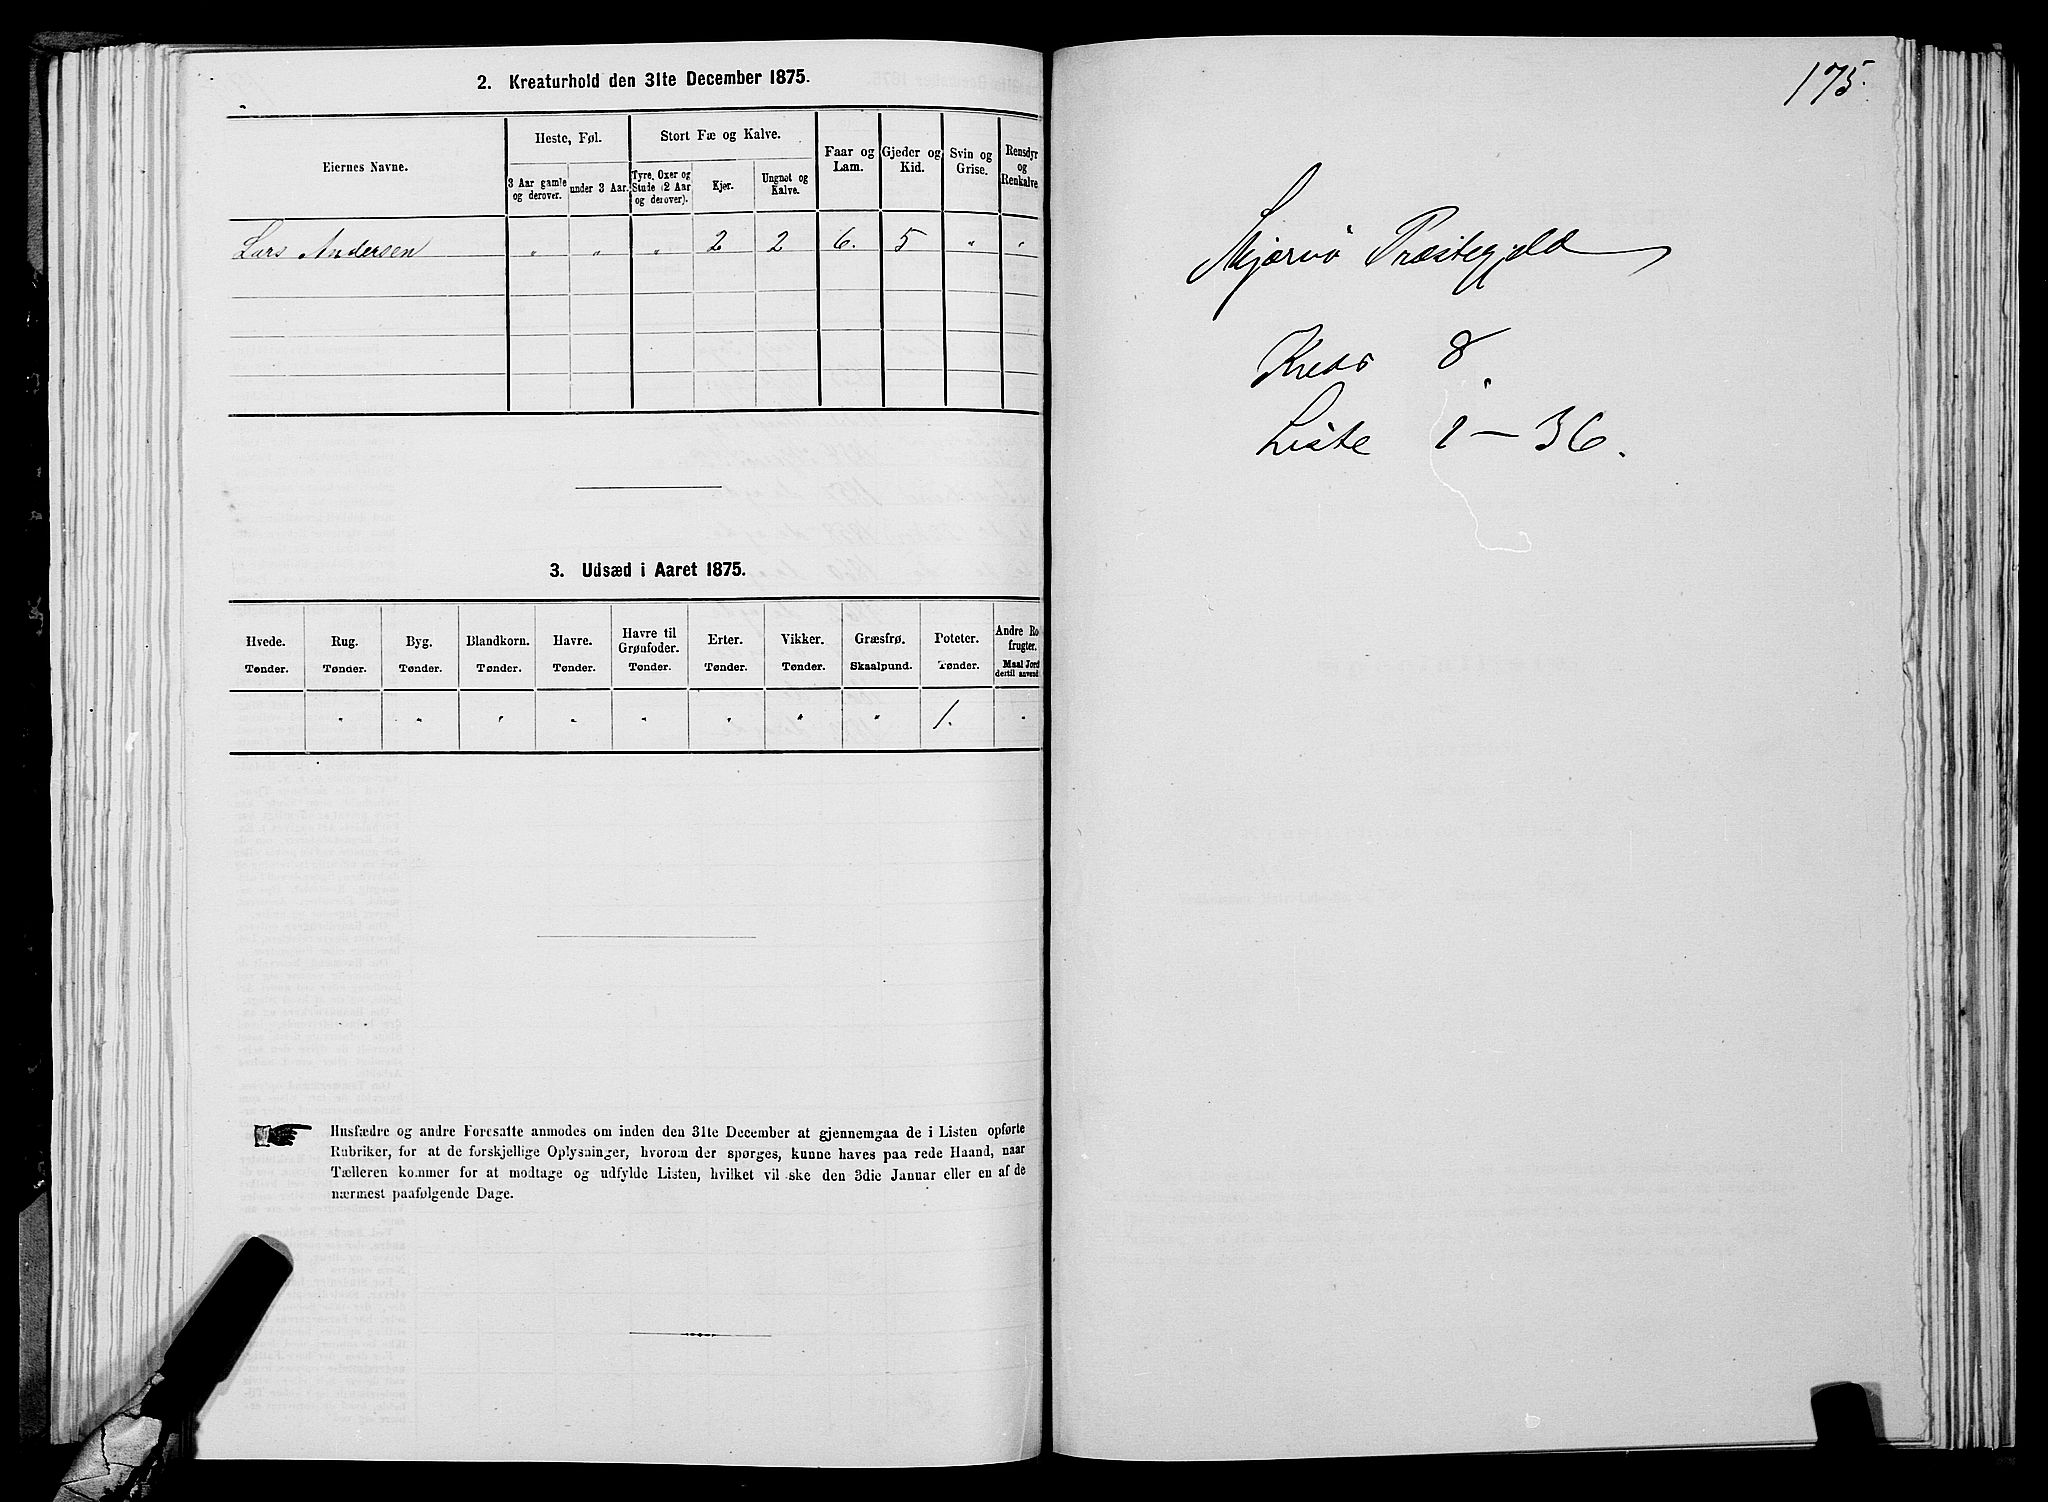 2. Kreaturhold den 31te December 1875.
Eiernes Navne.
Heste, Føl.
Stort Fæ og Kalve.
Faar og Lam.
Gjeder og Kid.
Svin og Grise.
Rensdyr og Renkalve
3 Aar gamle og derover.
under 3 Aar.
Tyre, Oxer og Stude (2 Aar og derover).
Kjør.
Ungnøt og Kalve.
Lars Andersen " " " 2 2 6. 5 " "
3. Udsæd i Aaret 1875.
Hvede. Rug. Byg. Blandkorn. Havre. Havre til Grønfoder. Erter. Vikker. Græsfrø. Poteter. Andre Ro frugter.
Tønder. Tønder. Tønder. Tønder. Tønder. Tønder. Tønder. Tønder. Skaalpund. Tønder. Maal Jord dertil anvend
" " " " " " " " 1. "
Husfædre og andre Foresatte anmodes om inden den 31te December at gjennemgaa de i Listen opførte
Rubriker, for at de forskjellige Oplysninger, hvorom der spørges, kunne haves paa rede Haand, naar
Tælleren kommer for at modtage og udfylde Listen, hvilket vil ske den 3die Januar eller en af de
nærmest paafølgende Dage.
175.
Skjærvø Præstegjeld
Kreds 8
Liste 1 - 36.